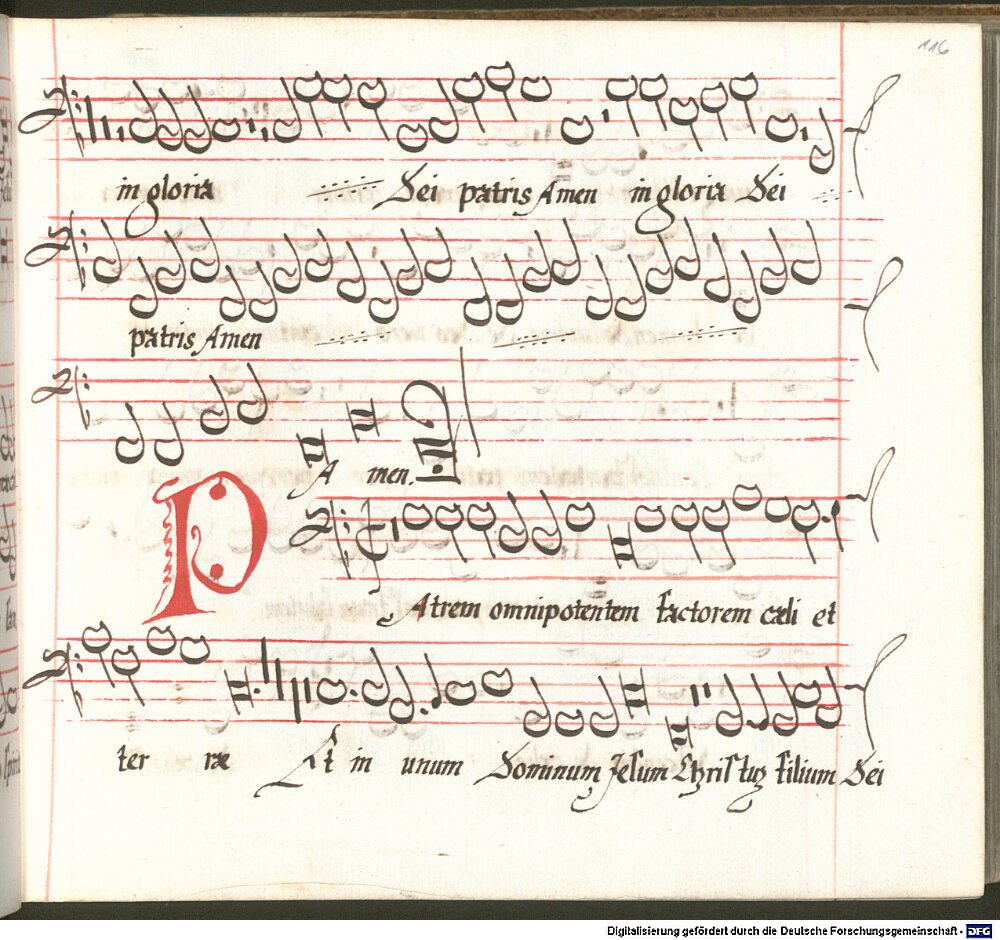 116
in gloria Dei patris Amen in gloria Dei
patris Amen
A men.
PAtrem omnipotentem factorem cæli et
ter ræ Et in unum Dominum Jesum Christuʒ filium Dei
Digitalisierung gefördert durch die Deutsche Forschungsgemeinschaft - DFG